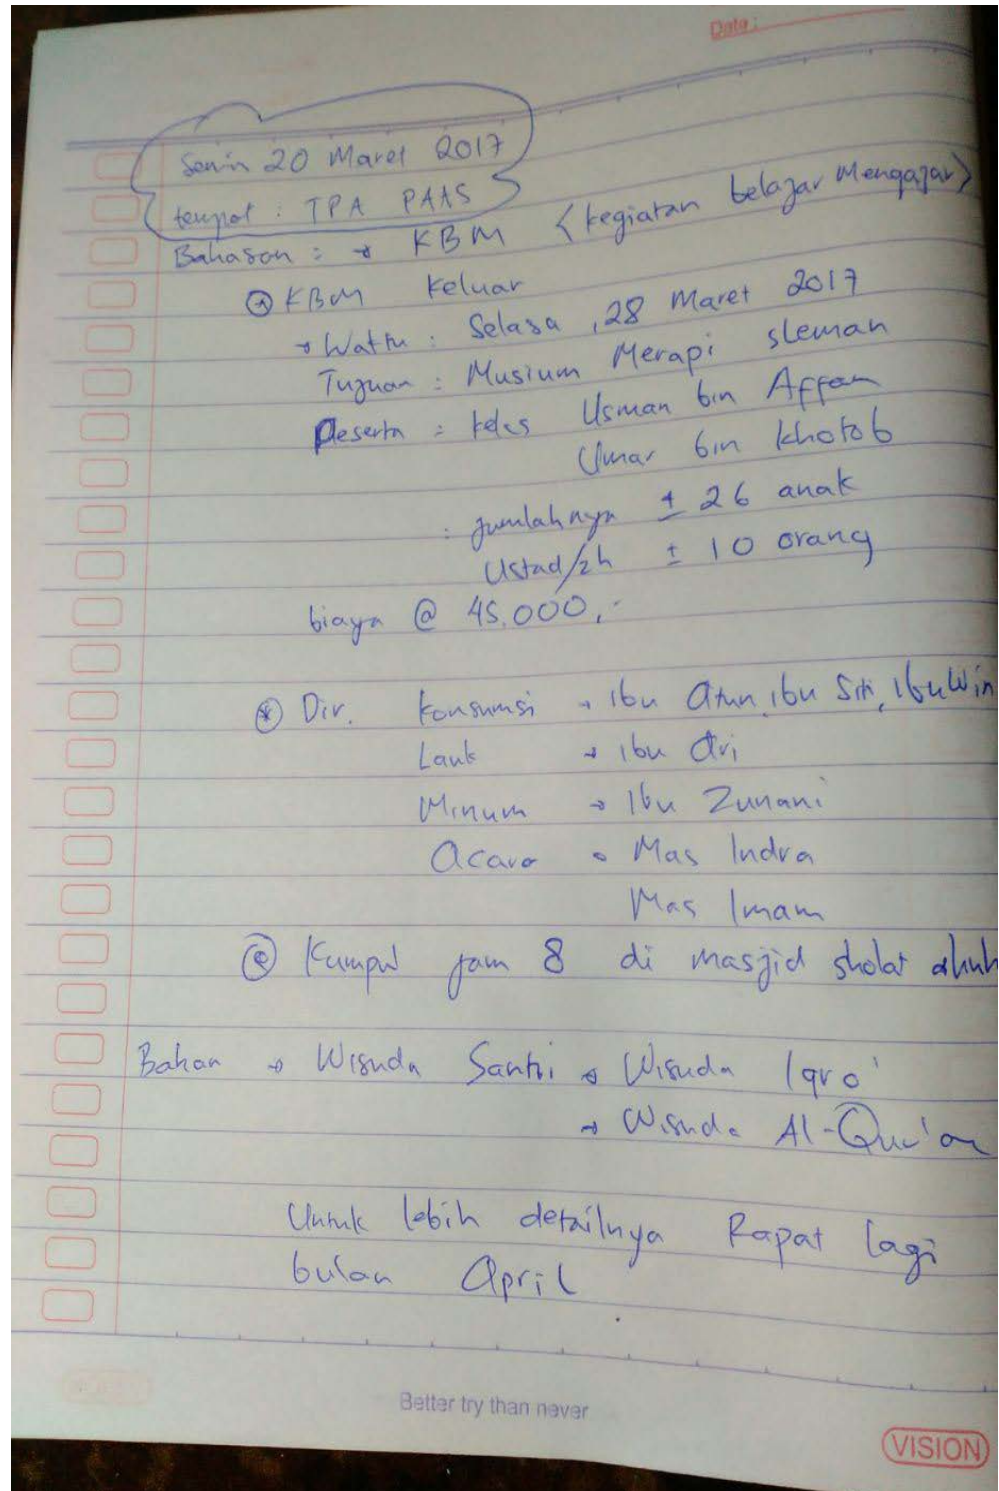 Date:
Senin 20 Maret 2017
tempat : TPA PAAS
Bahasan : → KBM <kegiatan belajar Mengajar>
KBM Keluar
→ Waktu : Selasa, 28 Maret 2017
Tujuan : Musium Merapi sleman
Peserta : kelas Usman bin Affan
Umar bin Khotob
: jumlahnya ± 26 anak
Ustad/zh ± 10 orang
biaya @ 45.000,-
* Div. Konsumsi → Ibu Atun, ibu Siti, Ibu Win
Lauk → ibu Ari
Minum → Ibu Zunani
Acara → Mas Indra
Mas Imam
Kumpul jam 8 di masjid sholat dhuh
Bahan → Wisuda Santri → Wisuda Iqro'
→ Wisuda Al-Qur'an
Untuk lebih detailnya Rapat lagi
bulan April
Better try than never
VISION